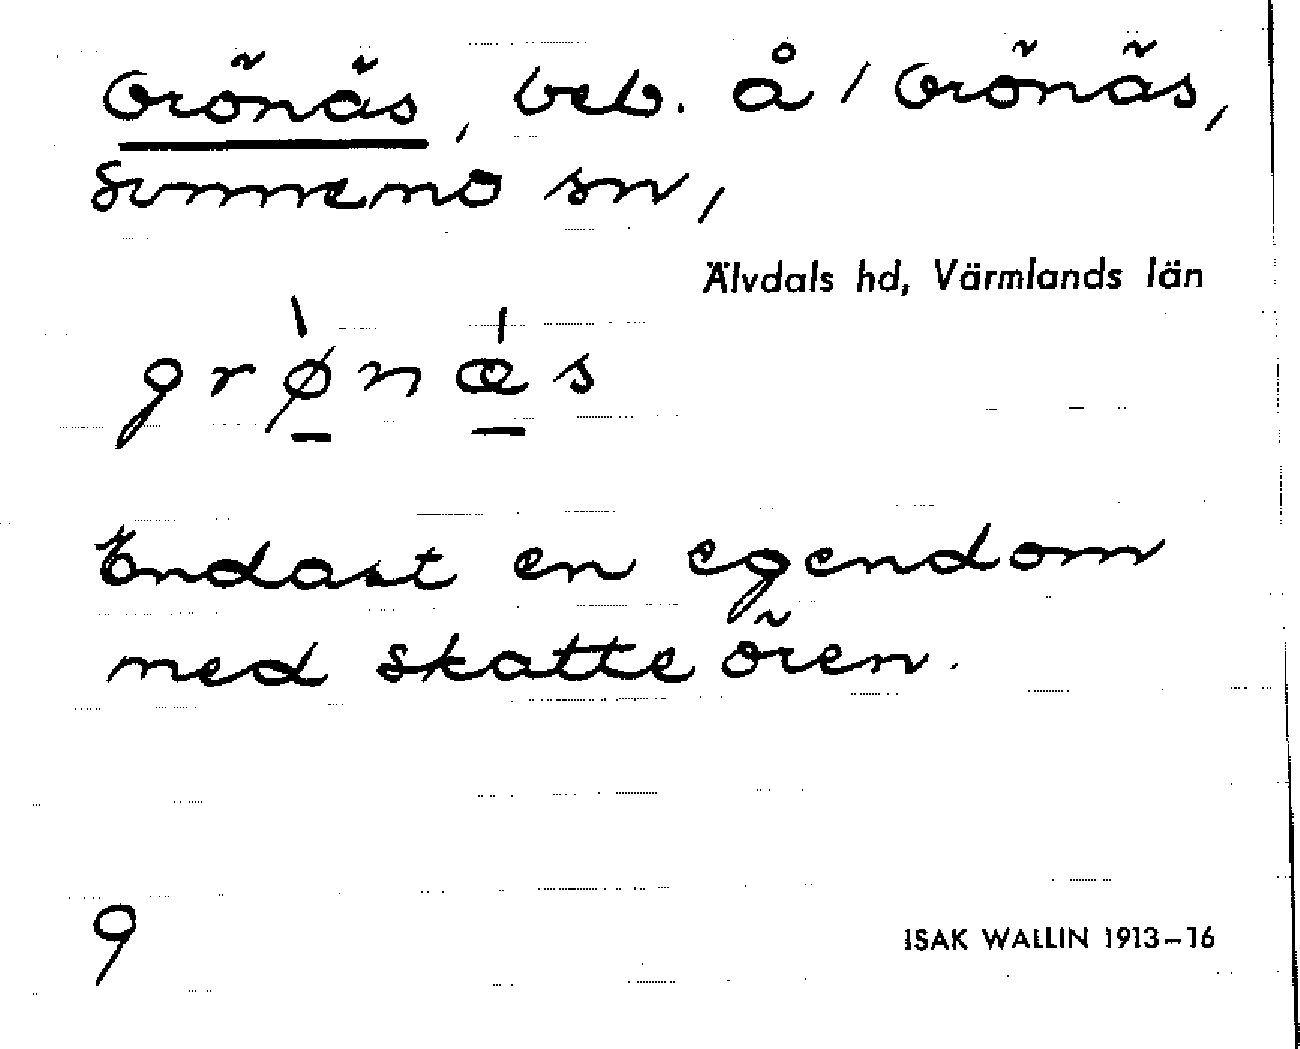 Grönäs, beb. å 1 Grönäs,
Sunnemo sn,
Älvdals hd, Värmlands län
grø̀nǽs
Endast en egendom
med skatteören.
9
ISAK WALLIN 1913–16